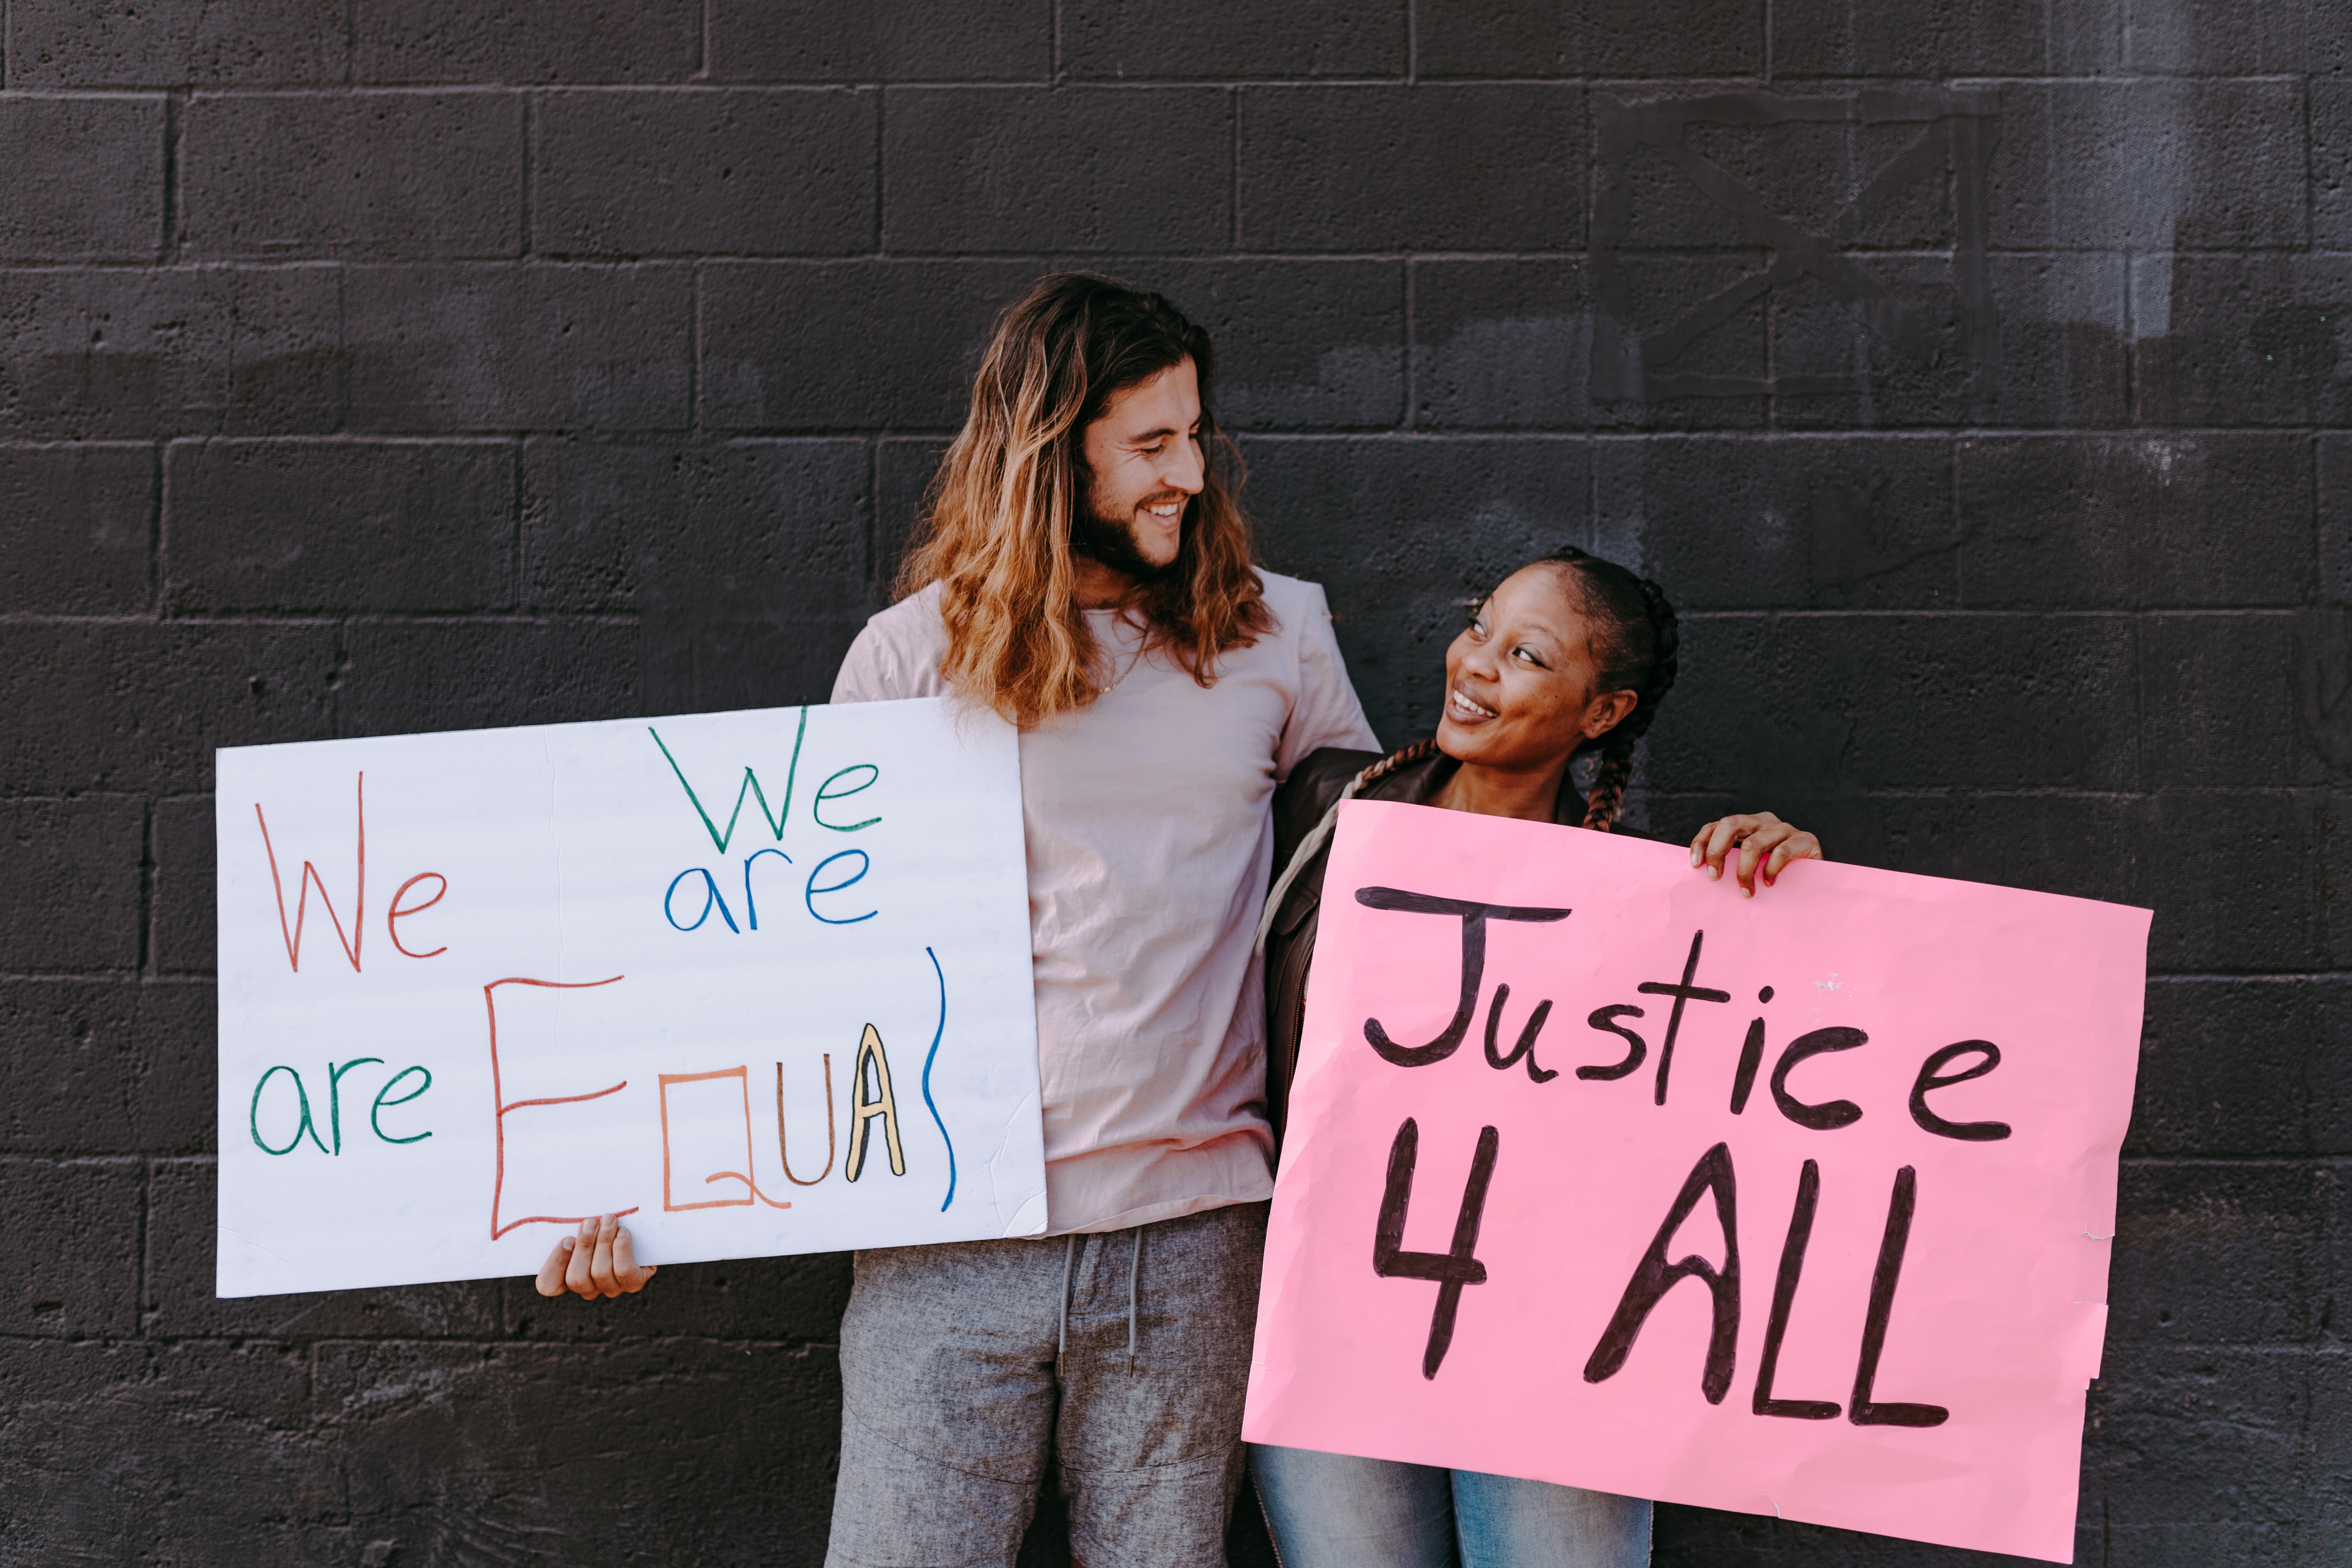 We We
are are
EQUAL
Justice
4 ALL